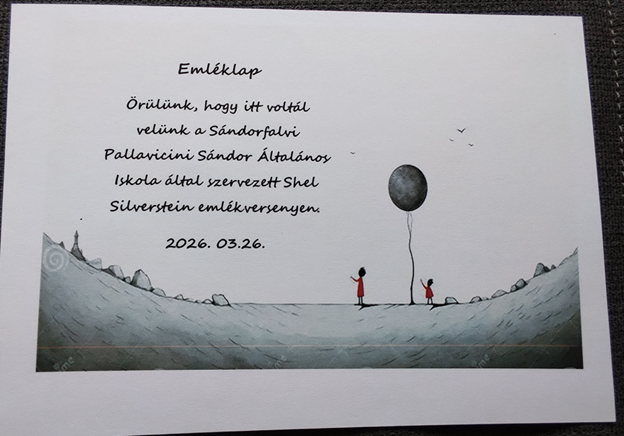 Emléklap
Örülünk, hogy itt voltál
velünk a Sándorfalvi
Pallavicini Sándor Általános
Iskola által szervezett Shel
Silverstein emlékversenyen.
2026. 03.26.